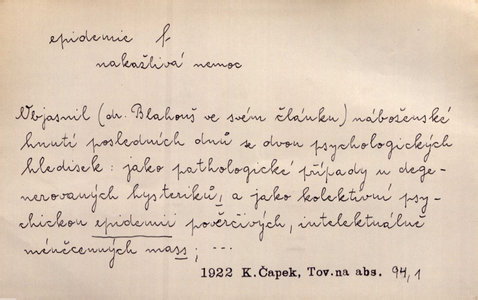 epidemie f
nakažlivá nemoc
Objasnil (dr. Blahouš ve svém článku) náboženské
hnutí posledních dnů z dvou psychologických
hledisek: jako pathologické případy u dege-
nerovaných hysteriků, a jako kolektivní psy-
chickou epidemii pověrčivých, intelektuálně
méněcenných mass; ...
1922 K.Čapek, Tov.na abs. 94,1